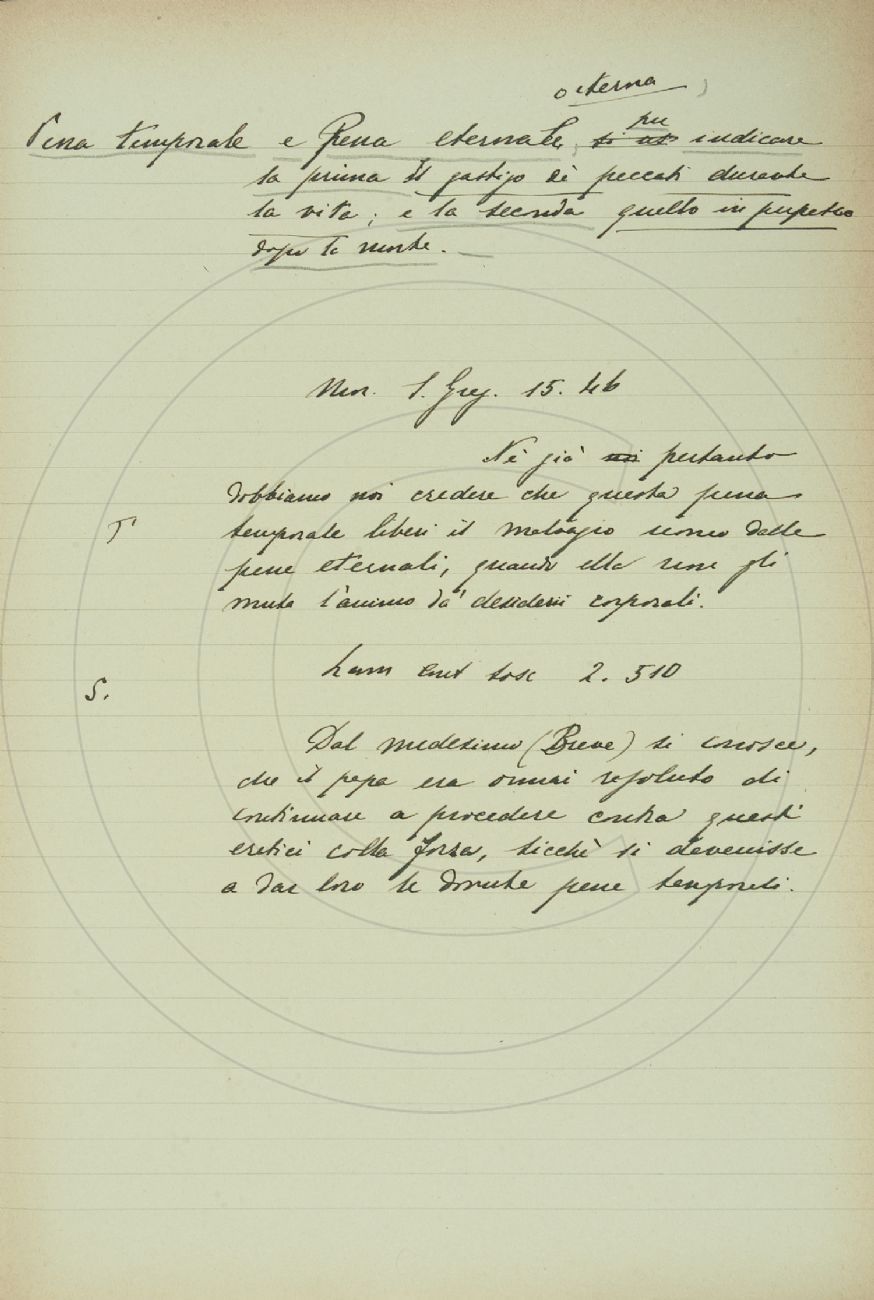 o eterna
Pena temporale e Pena eternale, per
si us indicare
la prima il gastigo de' peccati durante
la vita; e la seconda quello in perpetuo
dopo la morte.
Mor. S. Greg. 15. 46
Nè già noi pertanto
dobbiamo noi credere che questa pena
T
temporale liberi il malvagio uomo dalle
pene eternali, quando ella non gli
muta l'animo da' desiderii corporali.
Lam 2. 510
S.
Dal medesimo (Breve) si conosce,
che il papa era omai resoluto di
continuare a procedere contra questi
eretici colla forza, sicchè si devenisse
a dar loro le dovute pene temporali.